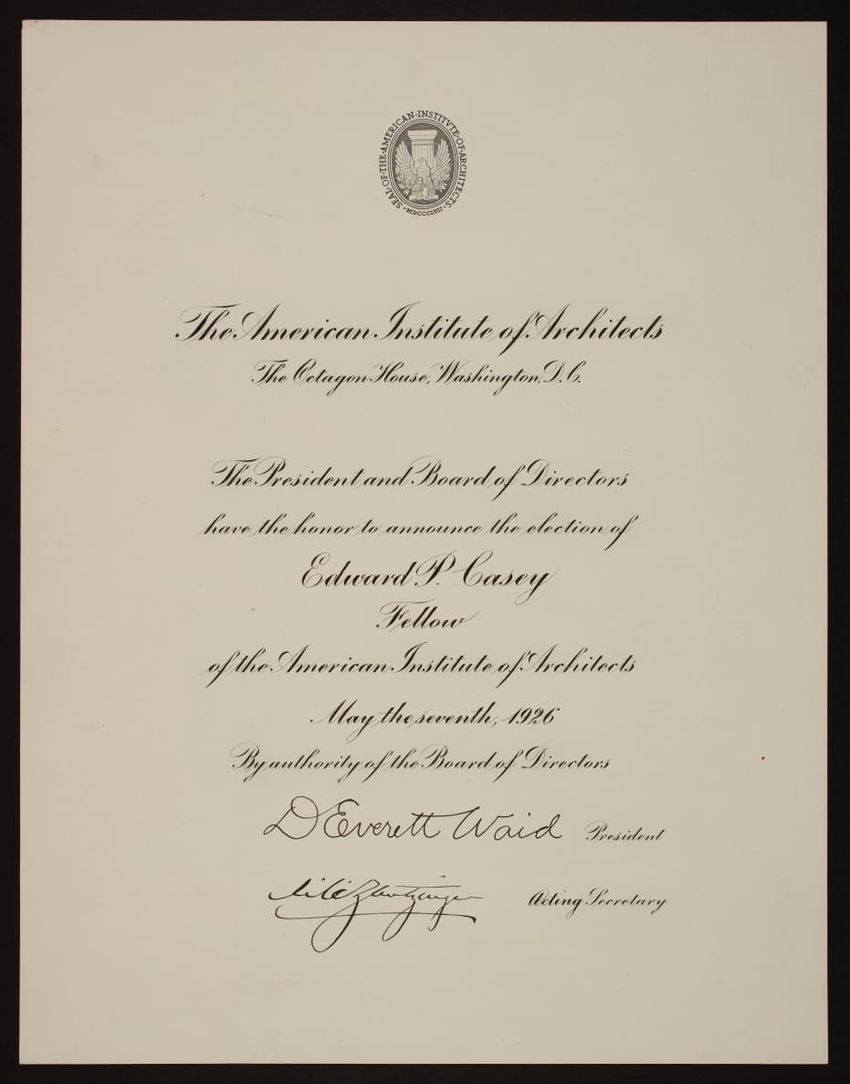 SEAL·OF·THE·AMERICAN·INSTITVTE·OF·ARCHITECTS
·MDCCCLVII·
The American Institute of Architects
The Octagon House, Washington, D.C.
The President and Board of Directors
have the honor to announce the election of
Edward P. Casey
Fellow
of the American Institute of Architects
May the seventh, 1926
By authority of the Board of Directors
D Everett Waid President
Acting Secretary